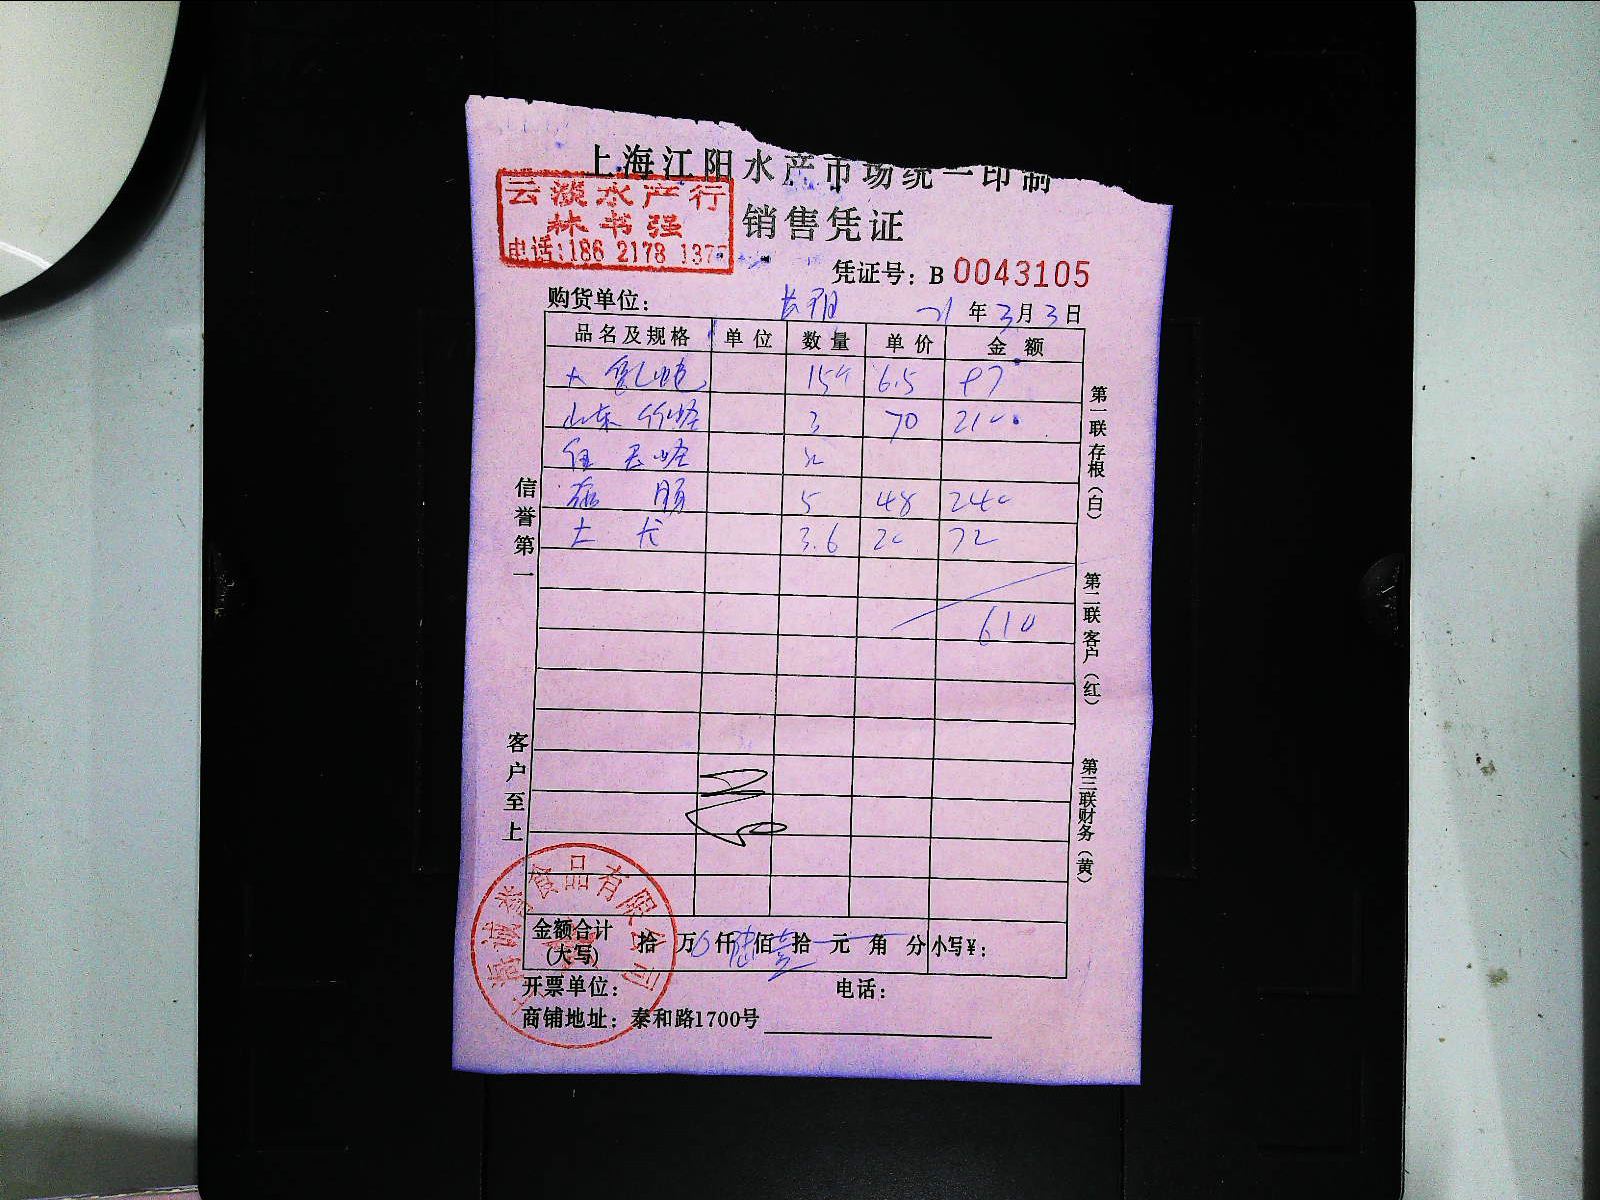 上海江阳水产市场统一印制
云淡水产行
林书强
电话:186 2178 137
销售凭证
凭证号: B 0043105
购货单位:
21年3月3日
品名及规格 单位 数量 单价 金额
大 鲍 15个 6.5 97
山东竹蛏 3 70 210
5 48 240
大 3.6 20 72
610
信誉第一
客户至上
第一联存根(白)
第二联客户(红)
第三联财务(黄)
金额合计(大写) 拾 万 仟 陆佰 壹拾 元 角 分 小写¥:
开票单位: 电话:
商铺地址: 泰和路1700号
海诚 食品有限公司